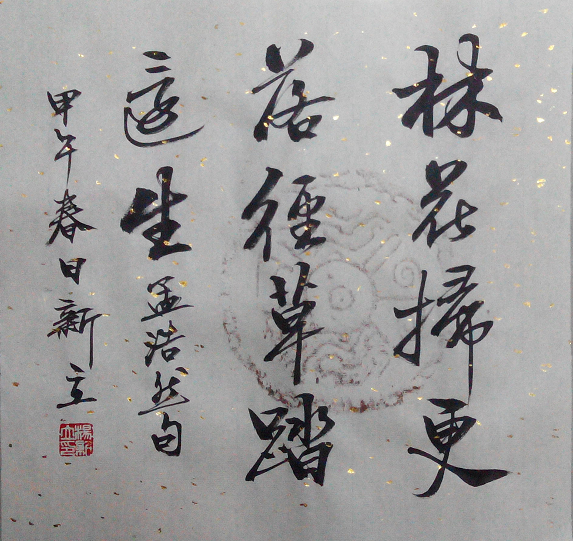 林花掃更
落徑草踏
還生孟浩然句
甲午春日新立